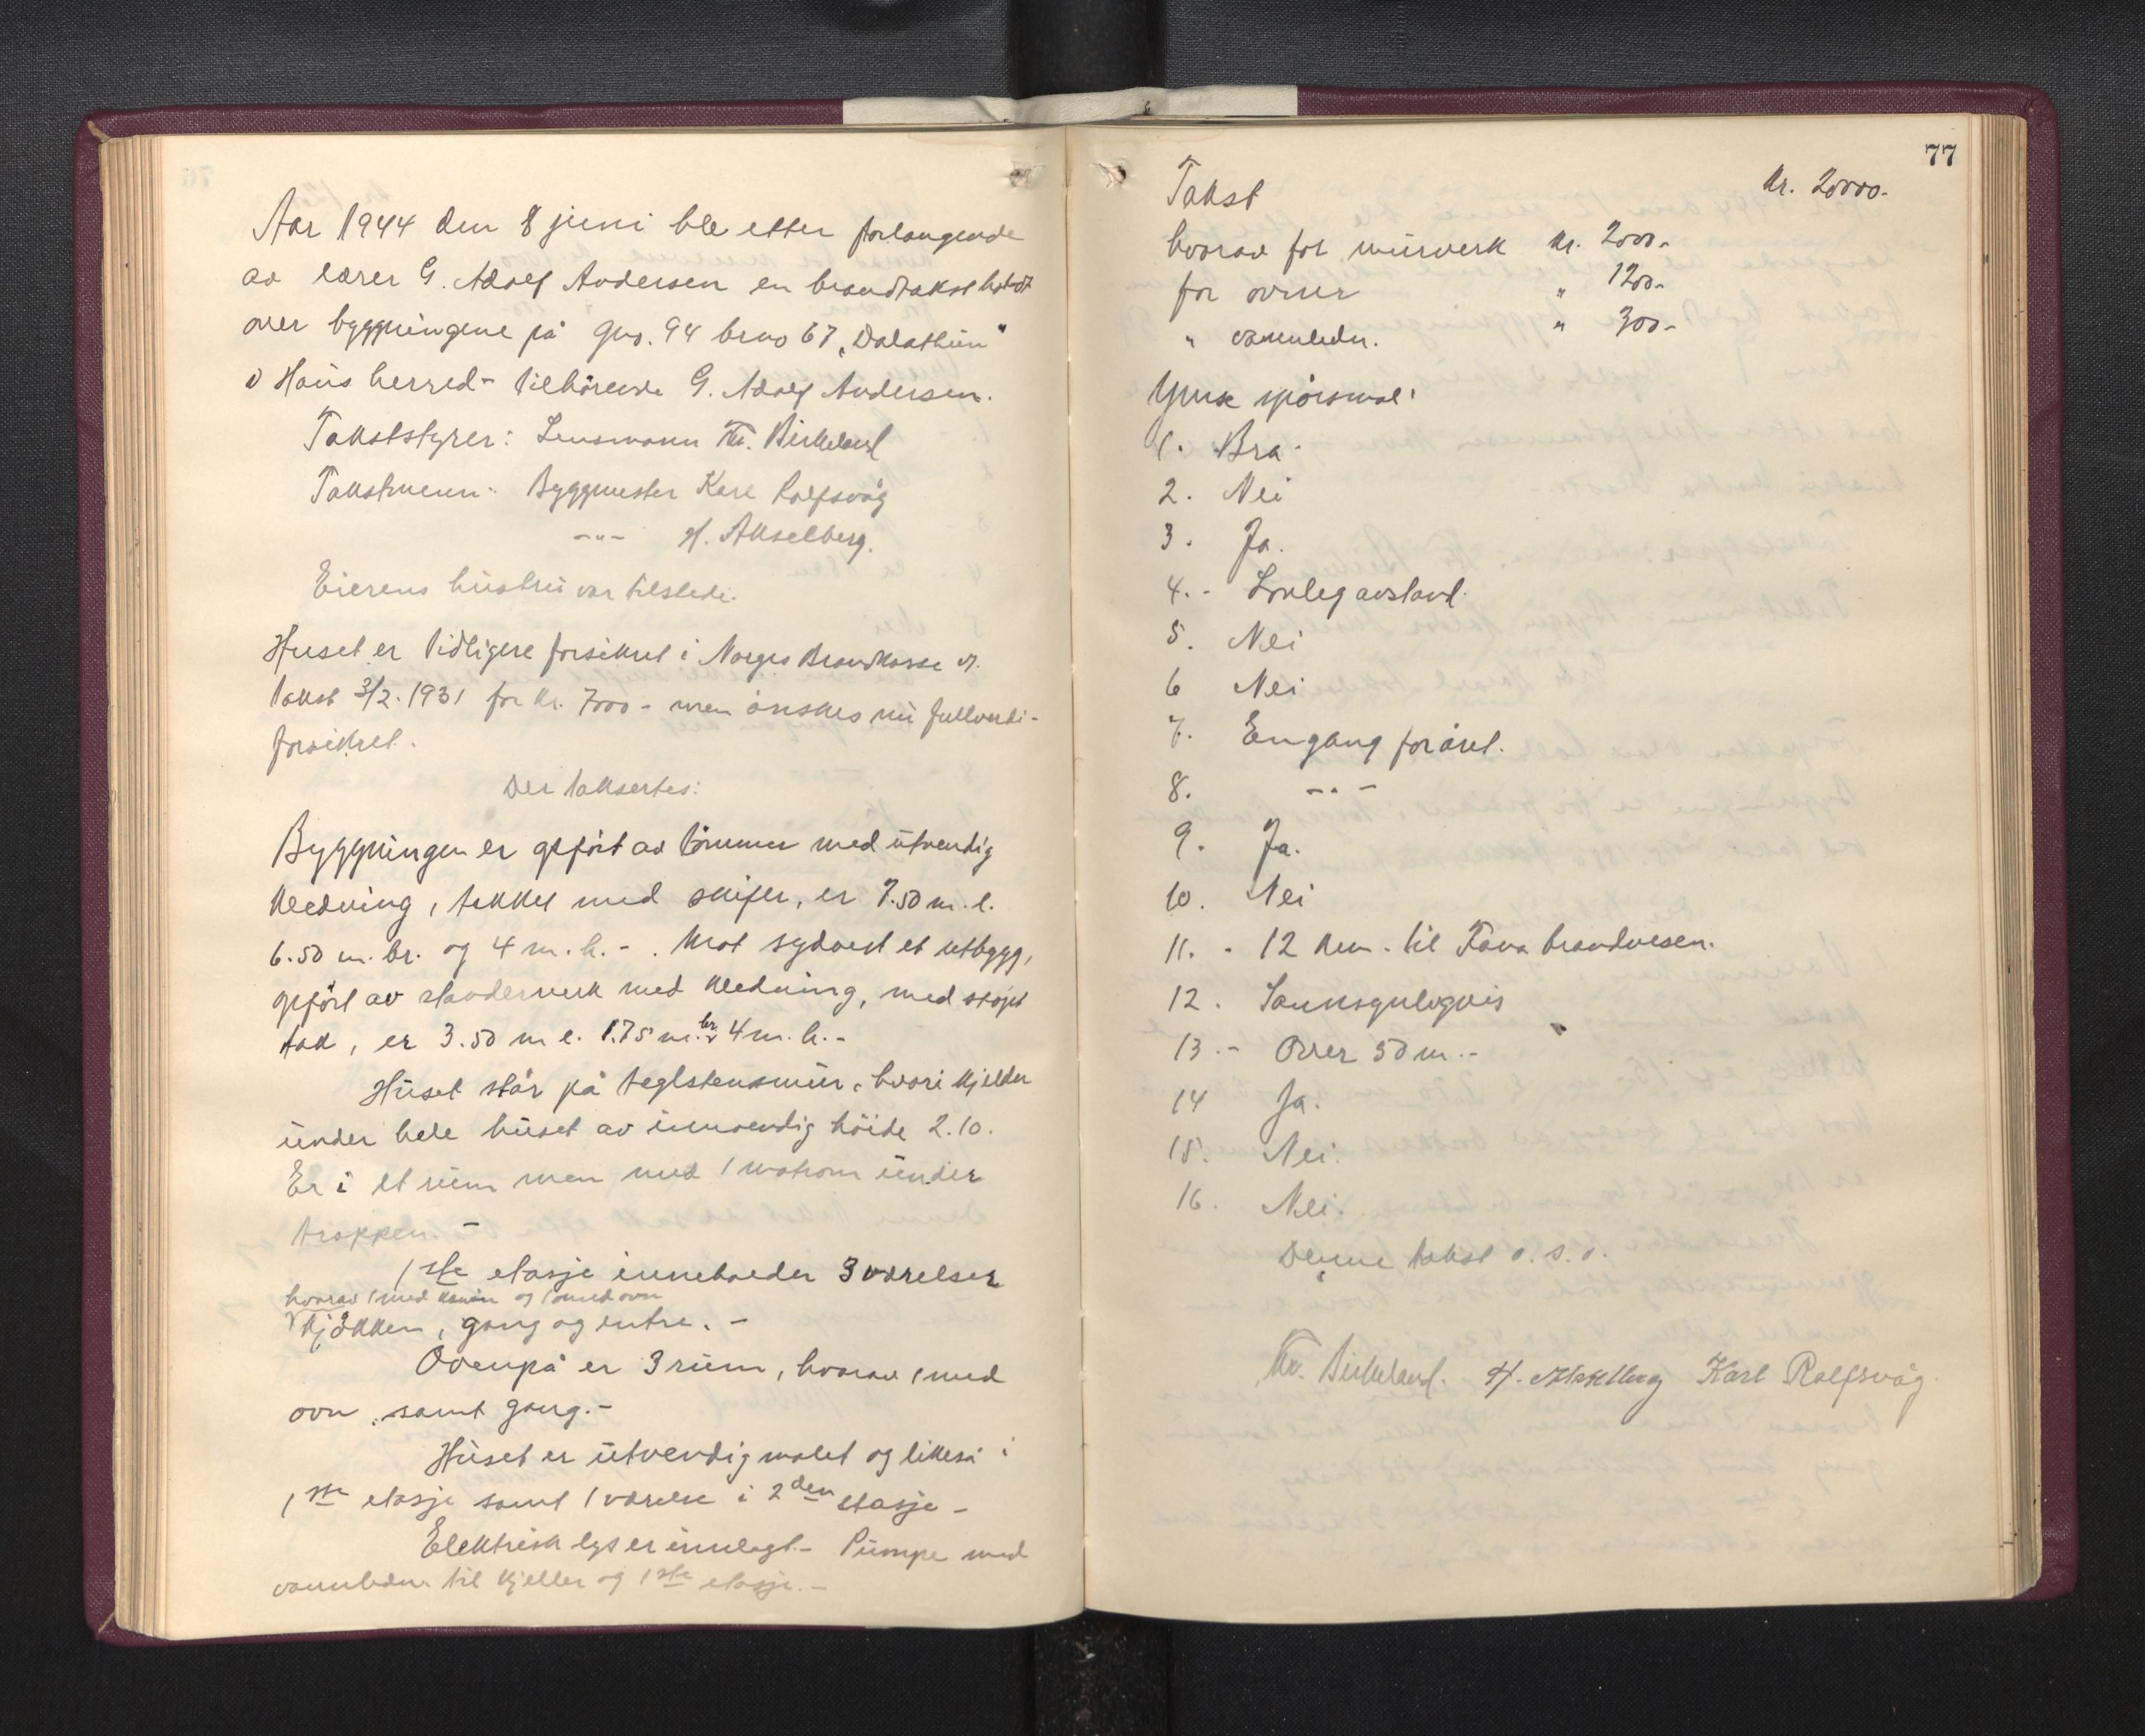 Aar 1944 den 8 juni ble etter forlangende
av lærer G. Adolf Andersen en brandtakst holdt
over byggningene på gno. 94 brno 67 „Dalathun"
i Haus herred - tilhörende G. Adolf Andersen.
Takststyrer: Lensmann Kr. Birkeland
Takstmenn: Byggmester Karl Rolfsvåg
-"- H. Akselberg.
Eierens hustru var tilstede.
Huset er tidligere forsikret i Norges Brandkasse
takst 3/2. 1931 for kr. 7000 - men önskes nu fullverdi-
forsikret.
Der taksertes:
Byggningen er opfört av tömmer med utvendig
kledning, tekket med skifer, er 7.50 m. l.
6.50 m. br. og 4 m. h. - . Mot sydvest et utbygg,
opfört av stenderverk med kledning, med stöpt
tak, er 3.50 m l. 1.75 m. br. 4 m. h. -
Huset står på teglstensmur, hvori kjelder
under hele huset av innvendig höide 2.10.
Er i et rum men med 1 matrom under
trappen. -
1ste etasje inneholder 3 værelser
hvorav 1 med kamin og 1 med ovn
kjökken, gang og entre. -
Ovenpå er 3 rum, hvorav 1 med
ovn, samt gang. -
Huset er utvendig malet og likeså i
1ste etasje samt 1 værelse i 2den etasje -
Elektrisk lys er innlagt. - Pumpe med
vannledn. til kjeller og 1ste etasje. -
77
Takst kr. 20000.-
hvorav for murverk kr. 2000.-
for ovner " 1200.-
" vannledn. " 300.-
Ymse spörsmål:
1. Bra.
2. Nei
3. Ja.
4. - Lovleg avstand.
5. Nei
6 Nei
7. Engang for året.
8. -"-
9. Ja.
10. Nei
11. - 12 km. til Fana brandvesen.
12. Sannsynligvis
13. - Over 50 m. -
14 Ja.
15. Nei.
16. Nei.
Denne takst o. s. v.
Kr. Birkeland. H. Akselberg Karl Rolfsvåg.